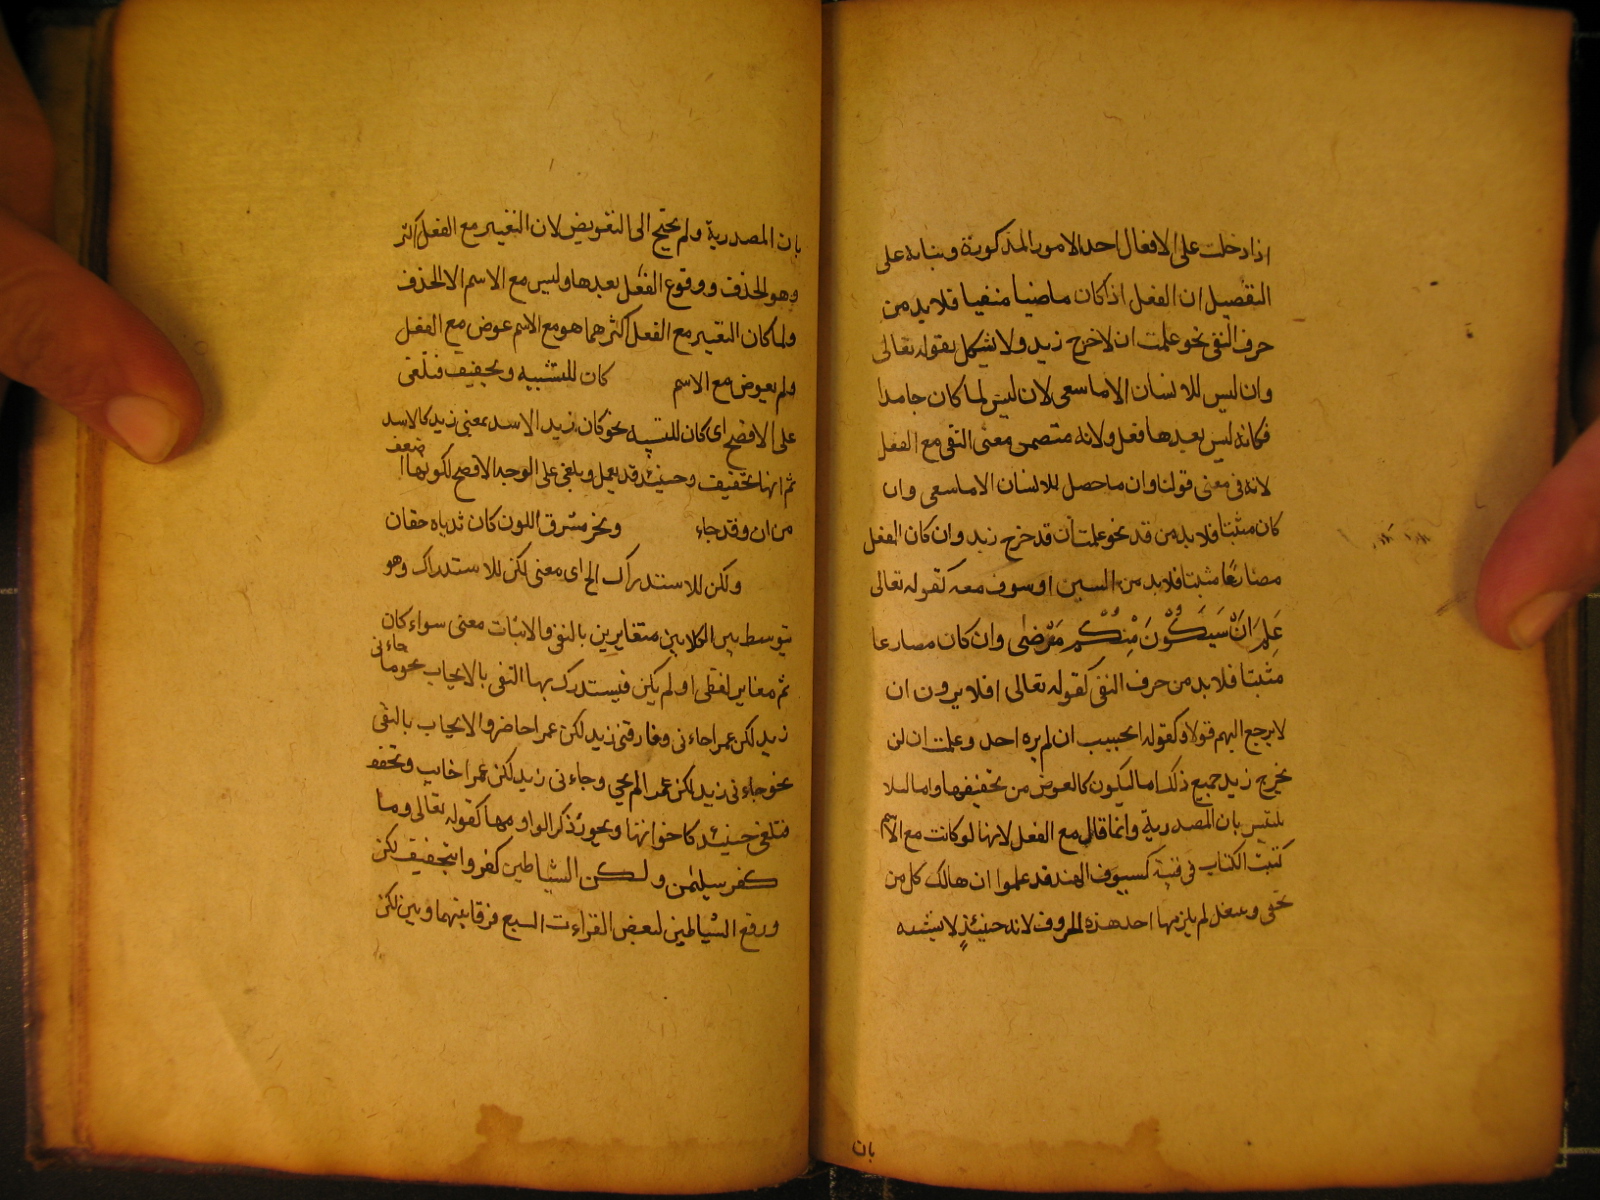 اذا دخلت على الافعال احد الامور المذكورة وبيانه على
التفصيل ان الفعل اذا كان ماضيا منفيا فلا بد من
حرف النفى نحو علمت ان لا خرج زيد ولا يشكل بقوله تعالى
وان ليس للانسان الا ما سعى لان ليس لما كان جامدا
فكانه ليس بعدها فعل ولانه متضمن معنى النفى مع الفعل
لانه فى معنى قولنا وان ما حصل للانسان الا ما سعى وان
كان مثبتا فلا بد من قد نحو علمت ان قد خرج زيد وان كان الفعل
مضارعا مثبتا فلا بد من السين او سوف معه كقوله تعالى
عَلِمَ اَنْ سَيَكُونُ مِنْكُمْ مَرْضٰى وان كان مضارعا
مثبتا فلا بد من حرف النفى كقوله تعالى افلا يرون ان
لا يرجع اليهم قولا وكقوله ايحسب ان لم يره احد وعلمت ان لن
يخرج زيد جميع ذلك اما ليكون كالعوض من تخفيفها واما لئلا
يلتبس بان المصدرية وانما قال مع الفعل لانها لو كانت مع الاسم
كتبت الكتاب فى فتية كسيوف الهند قد علموا ان هالك كل من
يحفى وينعل لم يلزمها احد هذه الحروف لانه حينئذٍ لا يشبه
بان
بان المصدرية ولم يحتج الى التعويض لان التغيير مع الفعل اكثر
وهو الحذف ووقوع الفعل بعدها وليس مع الاسم الا الحذف
ولما كان التغيير مع الفعل اكثر مما هو مع الاسم عوض مع الفعل
ولم يعوض مع الاسم كان للتشبيه وتخفيف فتلغى
على الافصح اى كان للتشبيه نحو كان زيد الاسد بمعنى زيد كالاسد
ثم انها تخفف وحينئذ قد يعمل ويلغى على الوجه الافصح لكونها اضعف
من ان وقد جاء ونحر مشرق اللون كان ثدياه حقان
ولكن للاستدراك الخ اى معنى لكن للاستدراك وهو
يتوسط بين الكلامين متغايرين بالنفى والاثبات معنى سواء كان
ثم مغاير لفظى او لم يكن فيستدرك بها النفى بالايجاب نحو ما جاءنى
زيد لكن عمرا جاءنى وفارقنى زيد لكن عمرا حاضر والايجاب بالنفى
نحو جاءنى زيد لكن عمرا لم يجى وجاءنى زيد لكن عمرا غايب وتخفف
فتلغى حينئذ كاخواتها ويجوز ذكر الواو معها كقوله تعالى وما
كفر سليمن ولكن الشياطين كفروا بتخفيف لكن
ورفع الشياطين لبعض القراءت السبع فرقا بينهما وبين لكن